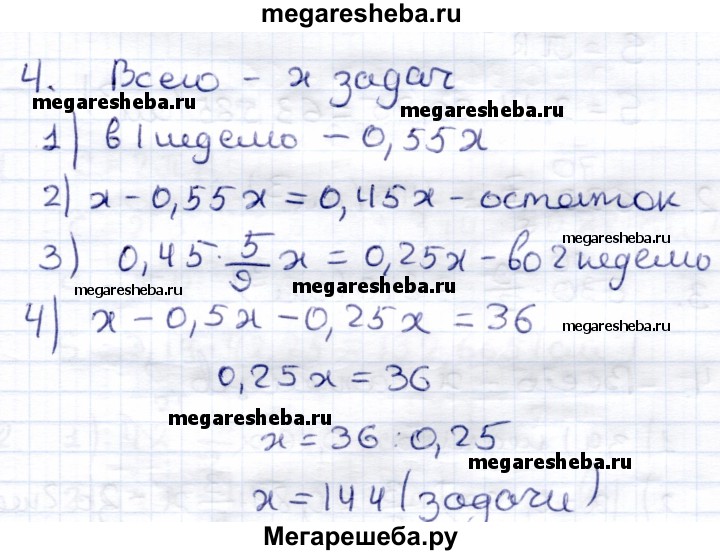 megaresheba.ru
4. Всего - x задач
megaresheba.ru megaresheba.ru
1) в 1 неделю - 0,55x
2) x - 0,55x = 0,45x - остаток
megaresheba.ru
3) 0,45 · 5/9 x = 0,25x - во 2 неделю
megaresheba.ru megaresheba.ru
4) x - 0,5x - 0,25x = 36
megaresheba.ru
0,25x = 36
megaresheba.ru
x = 36 : 0,25
megaresheba.ru
x = 144 (задачи)
Мегарешеба.ру